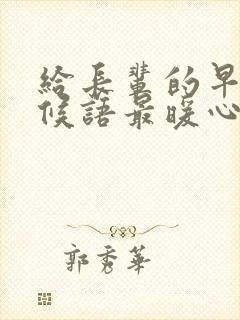 給長輩的早
候語最暖心
郭秀華